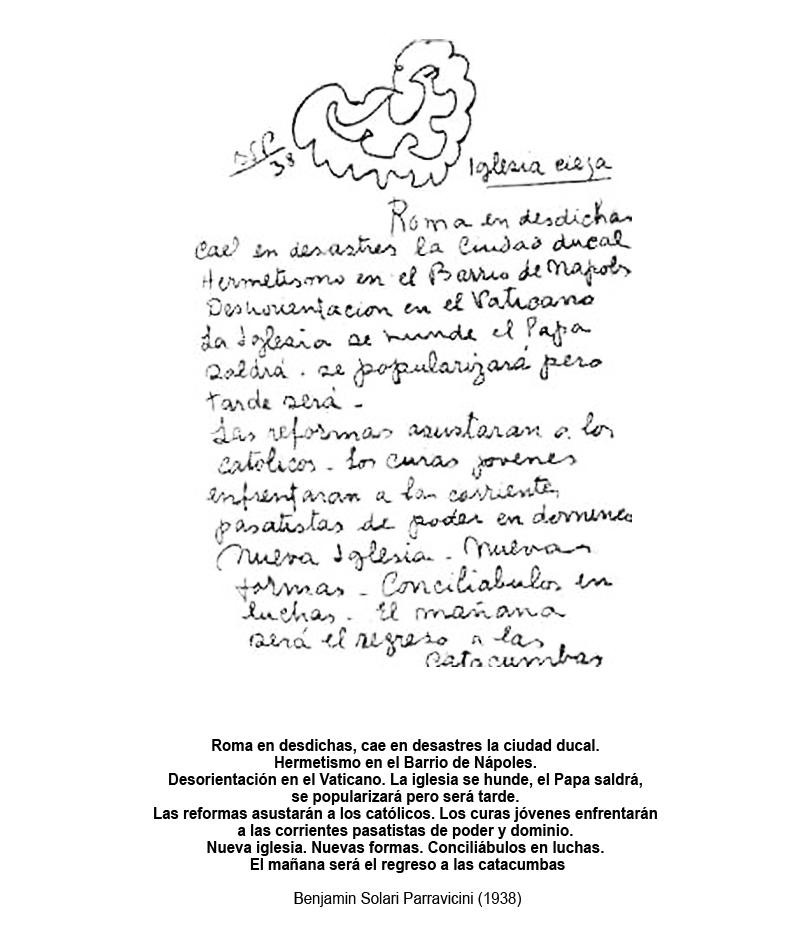 BSP
38
Iglesia ciega
Roma en desdichas
Cae en desastres la Ciudad ducal
Hermetismo en el Barrio de Napoles
Deshorientacion en el Vaticano
La Iglesia se hunde el Papa
Saldrá. se popularizará pero
tarde será -
Las reformas asustaran a los
católicos - Los curas jovenes
enfrentaran a la corriente,
pasatistas de poder en dominio
Nueva Iglesia - Nuevas
formas - Conciliabulos en
luchas - El mañana
será el regreso a las
catacumbas
Roma en desdichas, cae en desastres la ciudad ducal.
Hermetismo en el Barrio de Nápoles.
Desorientación en el Vaticano. La iglesia se hunde, el Papa saldrá,
se popularizará pero será tarde.
Las reformas asustarán a los católicos. Los curas jóvenes enfrentarán
a las corrientes pasatistas de poder y dominio.
Nueva iglesia. Nuevas formas. Conciliábulos en luchas.
El mañana será el regreso a las catacumbas
Benjamin Solari Parravicini (1938)